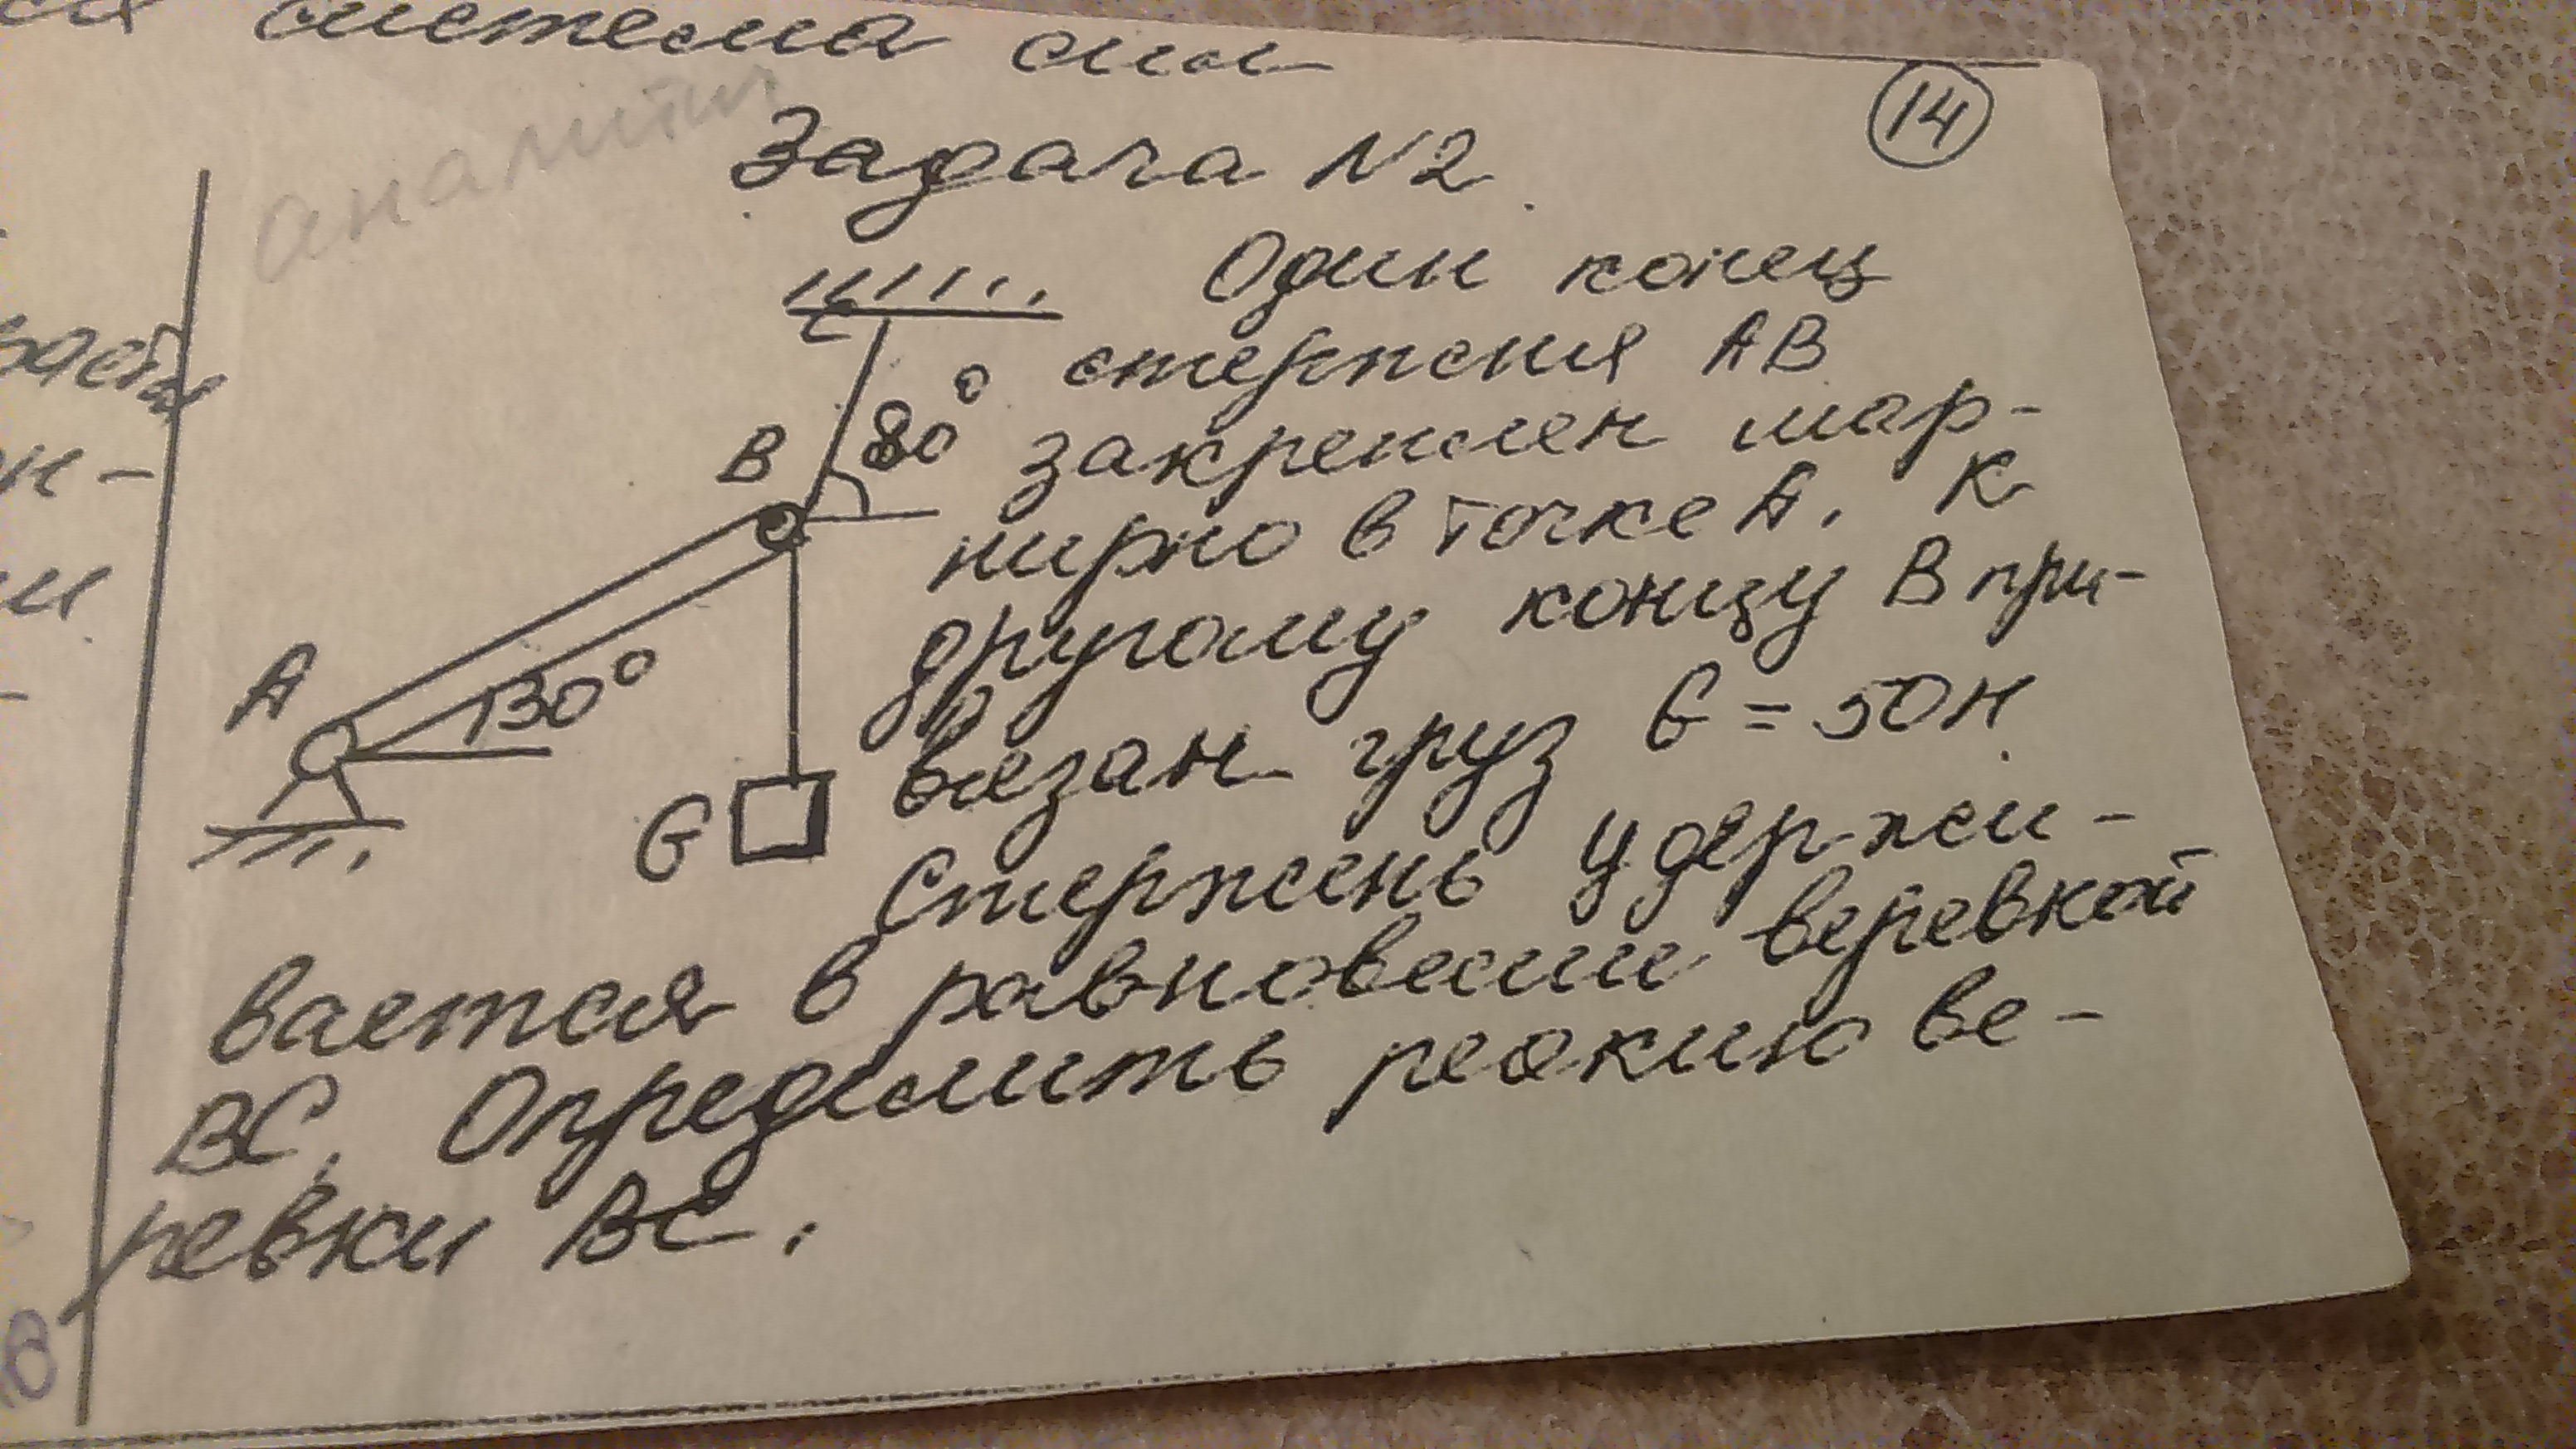 система сил
аналитич
14
Задача N2.
Один конец
C
стержня AB
80°
закреплен шар-
B
нирно в точке A. К
другому концу B при-
A
30°
вязан груз G = 50Н.
G
Стержень удержи-
вается в равновесии веревкой
BC. Определить реакцию ве-
ревки BC.